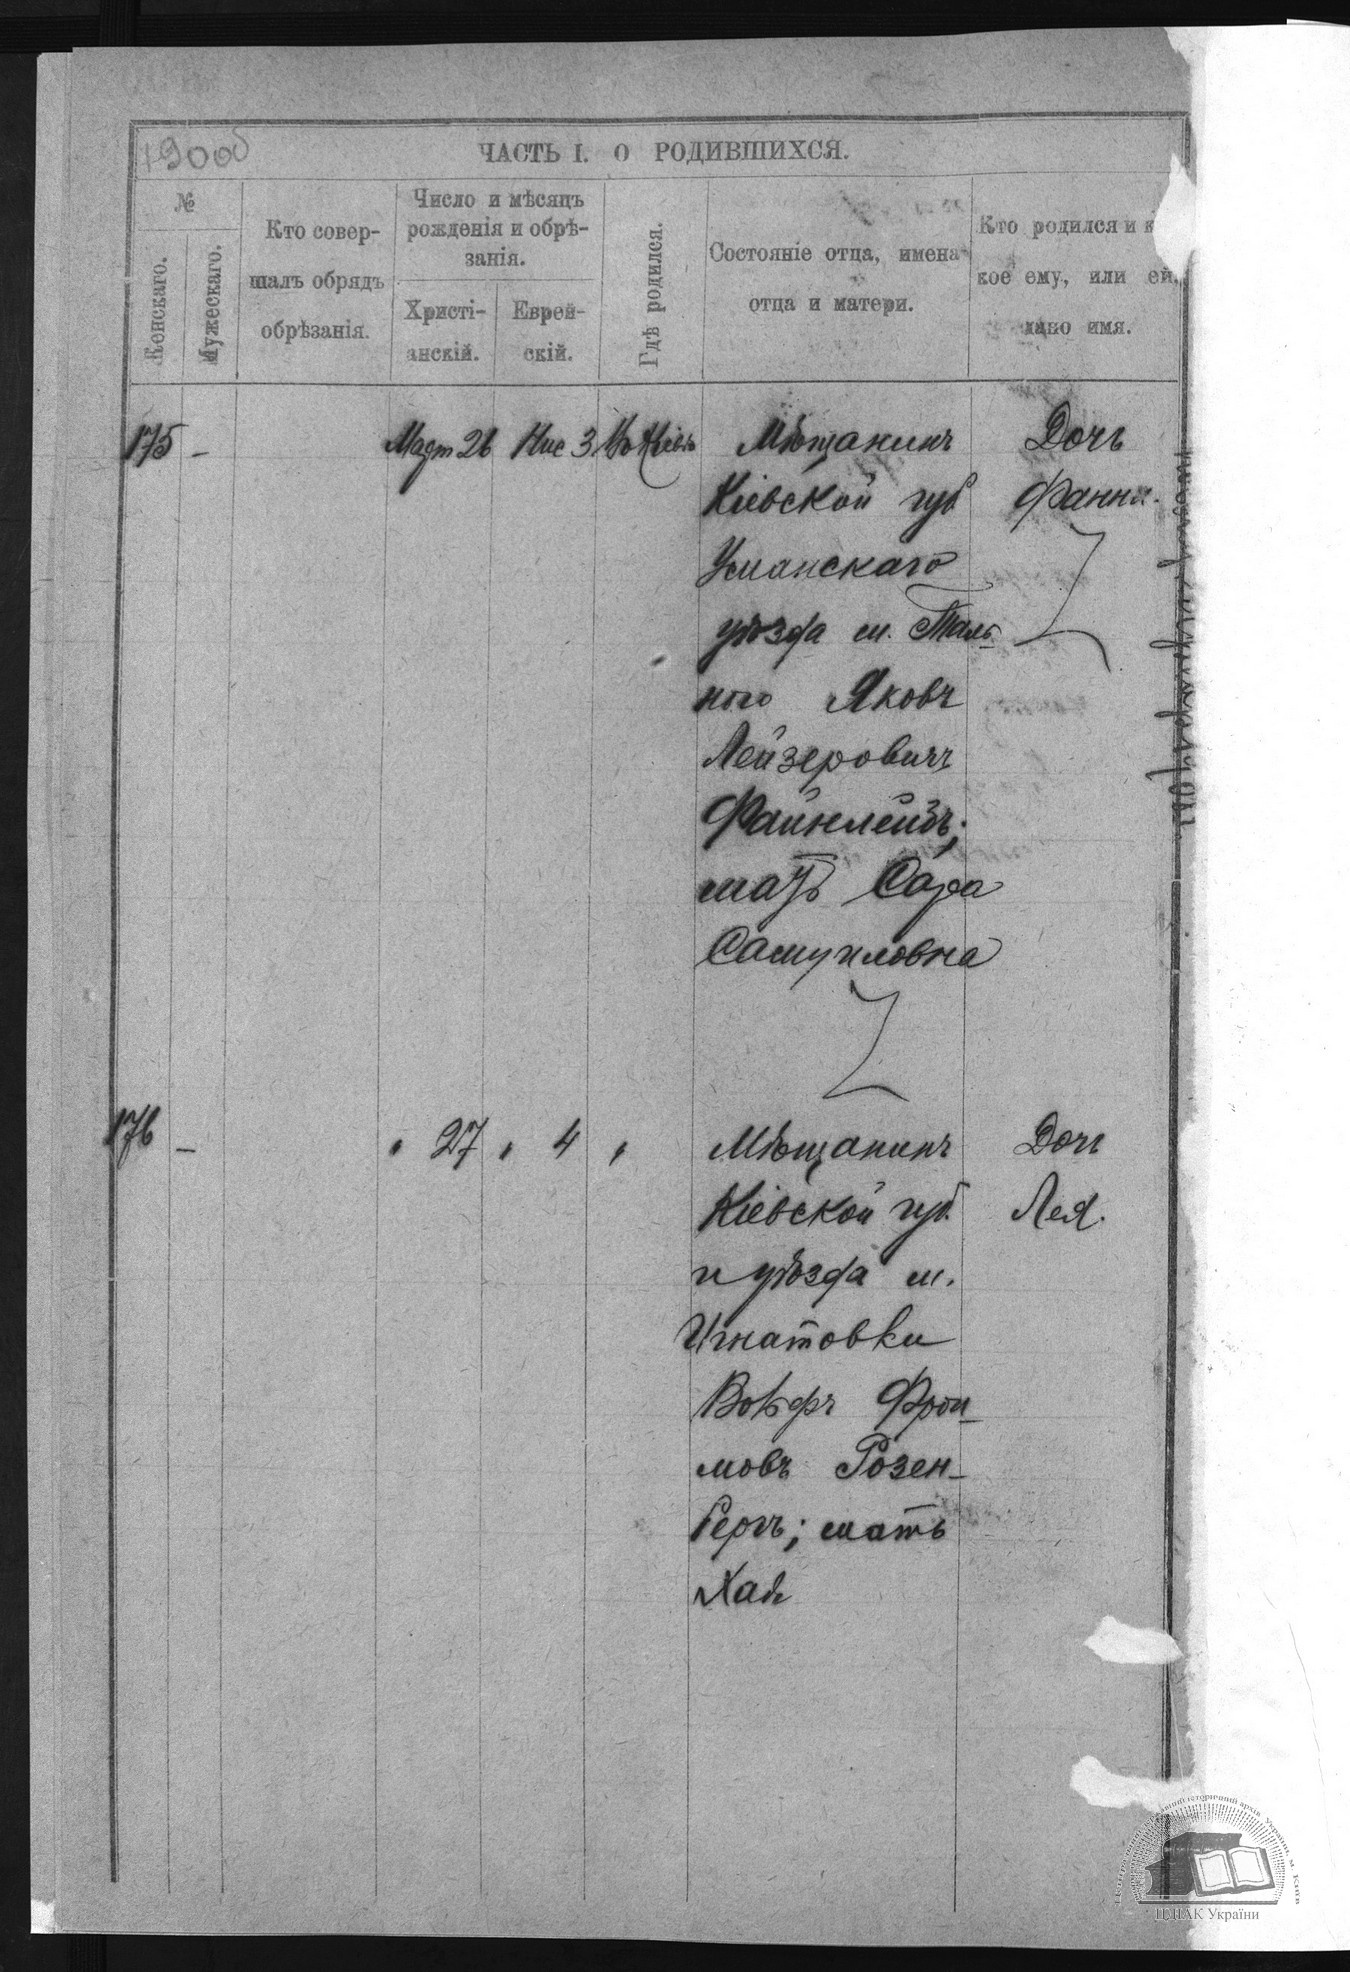 1900
ЧАСТЬ I. О РОДИВШИХСЯ.
№
Женскаго.
Мужескаго.
Кто совер-
шалъ обрядъ
обрѣзанія.
Число и мѣсяцъ
рожденія и обрѣ-
занія.
Христі-
анскій.
Еврей-
скій.
Гдѣ родился.
Состояніе отца, имена
отца и матери.
Кто родился и к
кое ему, или ей,
дано имя.
175 - Март 26 Нис 3 Въ Кіевѣ Мѣщанинъ Дочь
Кіевской губ Фанни.
Уманскаго
уѣзда м. Таль-
ного Яковъ
Лейзеровичъ
Файнлейбъ;
мать Сара
Самуиловна
176 - " 27 " 4 " Мѣщанинъ Дочь
Кіевской губ. Лея.
и уѣзда м.
Игнатовки
Вольфъ Фрои-
мовъ Розен-
бергъ; мать
Хая
ЦДІАК України